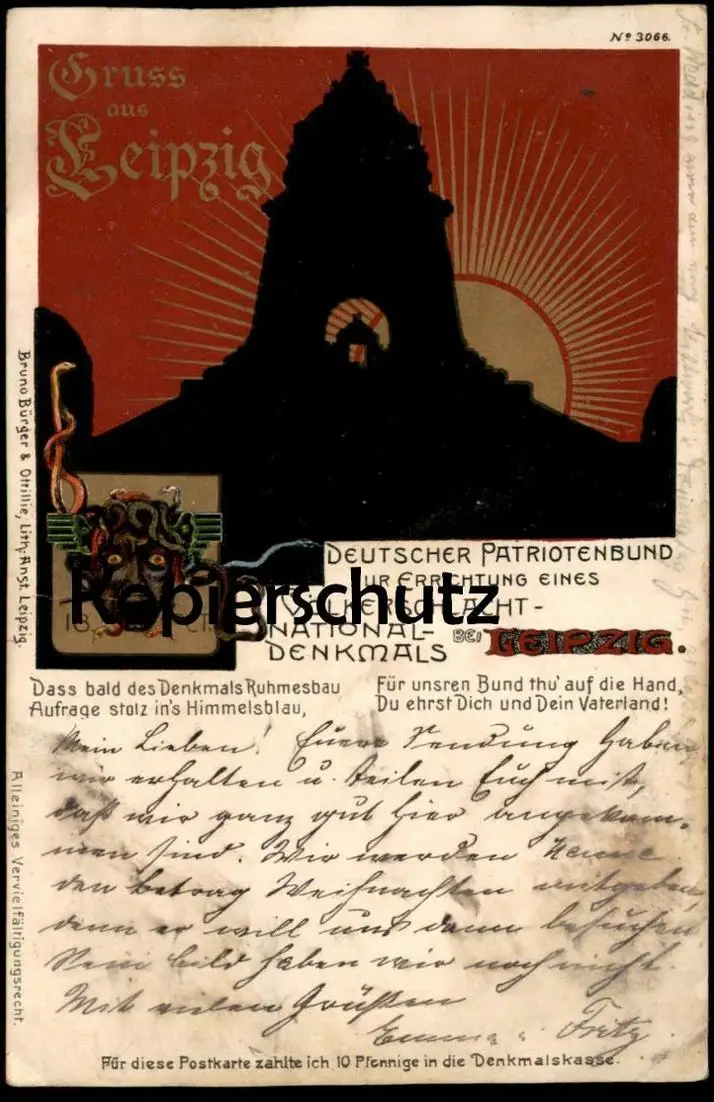 Nº 3066.
Gruss
aus
Leipzig
Kopierschutz
DEUTSCHER PATRIOTENBUND
ZUR ERRICHTUNG EINES
VÖLKERSCHLACHT-
NATIONAL-
DENKMALS
BEI LEIPZIG.
18
Bruno Bürger & Ottillie, Lith. Anst. Leipzig.
Dass bald des Denkmals Ruhmesbau
Aufrage stolz in's Himmelsblau,
Für unsren Bund thu' auf die Hand,
Du ehrst Dich und Dein Vaterland!
Alleiniges Vervielfältigungsrecht.
Mein Lieben! Euere Sendung haben
wir erhalten u. teilen Euch mit,
daß wir ganz gut hier angekom-
men sind. Wir werden
den Betrag Weihnachten mitgeben,
denn er will uns dann besuchen
Dein Bild haben wir noch nicht.
Mit vielen Grüßen
Emma Fritz.
Für diese Postkarte zahlte ich 10 Pfennige in die Denkmalskasse.